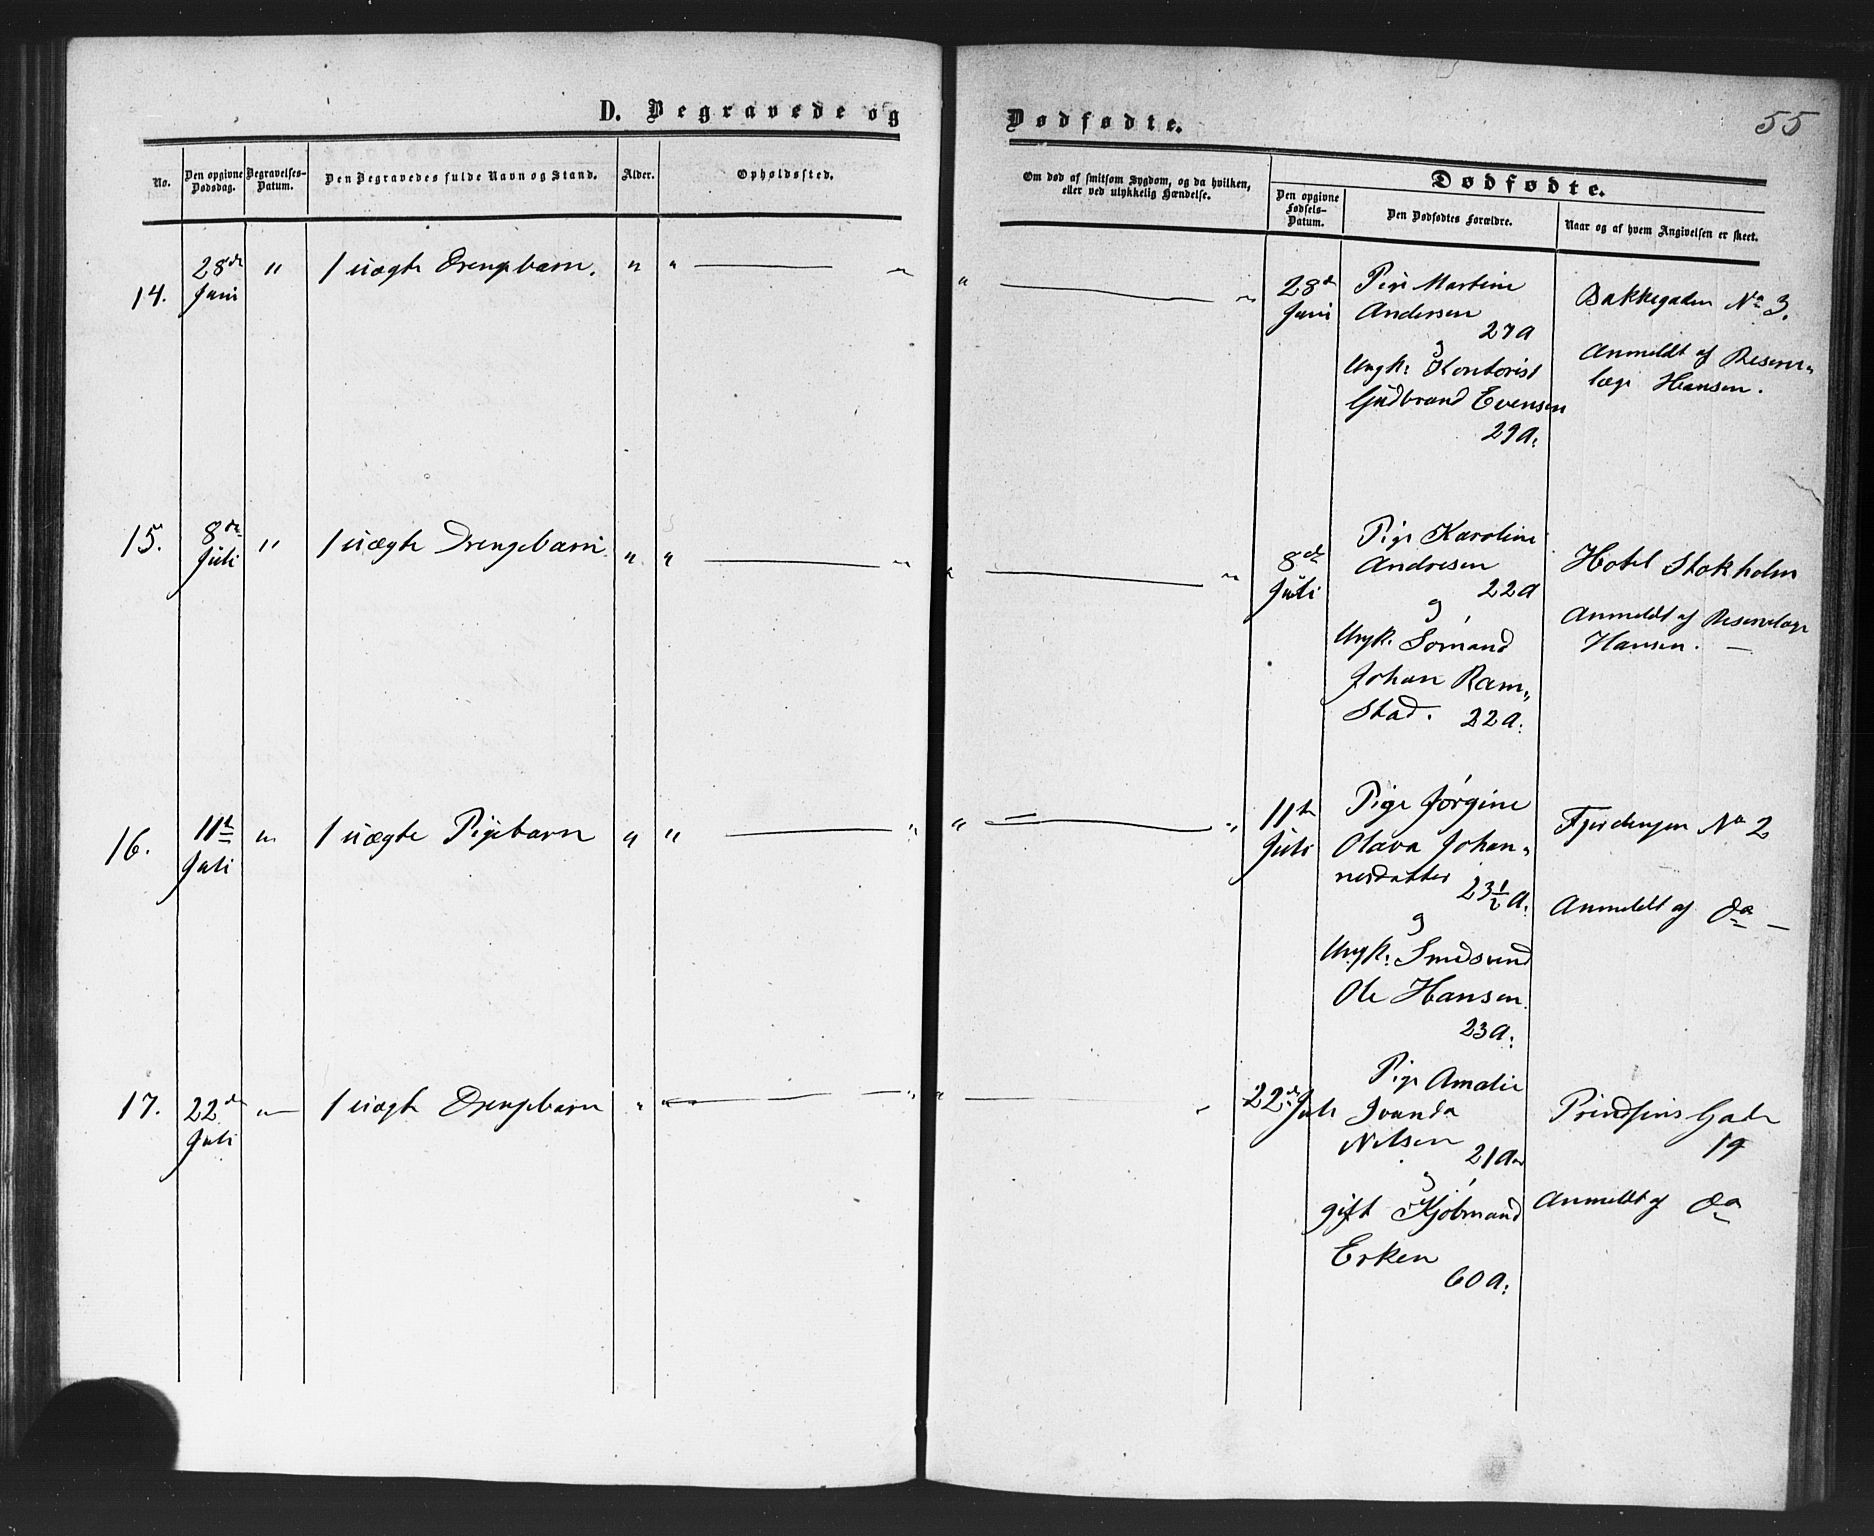 D. Begravede og
Dødfødte.
55
No.
Den opgivne Dødsdag.
Begravelses-Datum.
Den Begravedes fulde Navn og Stand.
Alder.
Opholdssted.
Om død af smitsom Sygdom, og da hvilken,
eller ved ulykkelig Hændelse.
Dødfødte.
Den opgivne Fødsels-Datum.
Den Dødfødtes Forældre.
Naar og af hvem Angivelsen er skeet.
14.
28de Juni
"
1 uægte Drengebarn.
"
"
"
"
"
28de Juni
Pige Martine
Andersen
27 A
og
Ungk: Kontorist
Gudbrand Evensen
29 A:
Bakkegaden No 3.
Anmeldt af Reserve„
læge Hansen.
15.
8de Juli
"
1 uægte Drengebarn
"
"
"
"
"
8de Juli
Pige Karoline
Andresen
22 A
og
Ungk. Sømand
Johan Ram„
stad. 22 A:
Hotel Stokholm
Anmeldt af Reservelæge
Hansen. —
16.
11te Juli
"
1 uægte Pigebarn
"
"
"
"
"
11te Juli
Pige Jørgine
Olava Johan„
nesdatter
23 1/2 A:
og
Ungk: Smedsvend
Ole Hansen
23 A:
Fjerdingen No 2
Anmeldt af Do —
17.
22de Juli
"
1 uægte Drengebarn
"
"
"
"
"
22de Juli
Pige Amalie
Ivanda
Nilsen
21 Aar
og
gift Kjøbmand
Erken
60 A:
Prindsens Gade
19
Anmeldt af Do